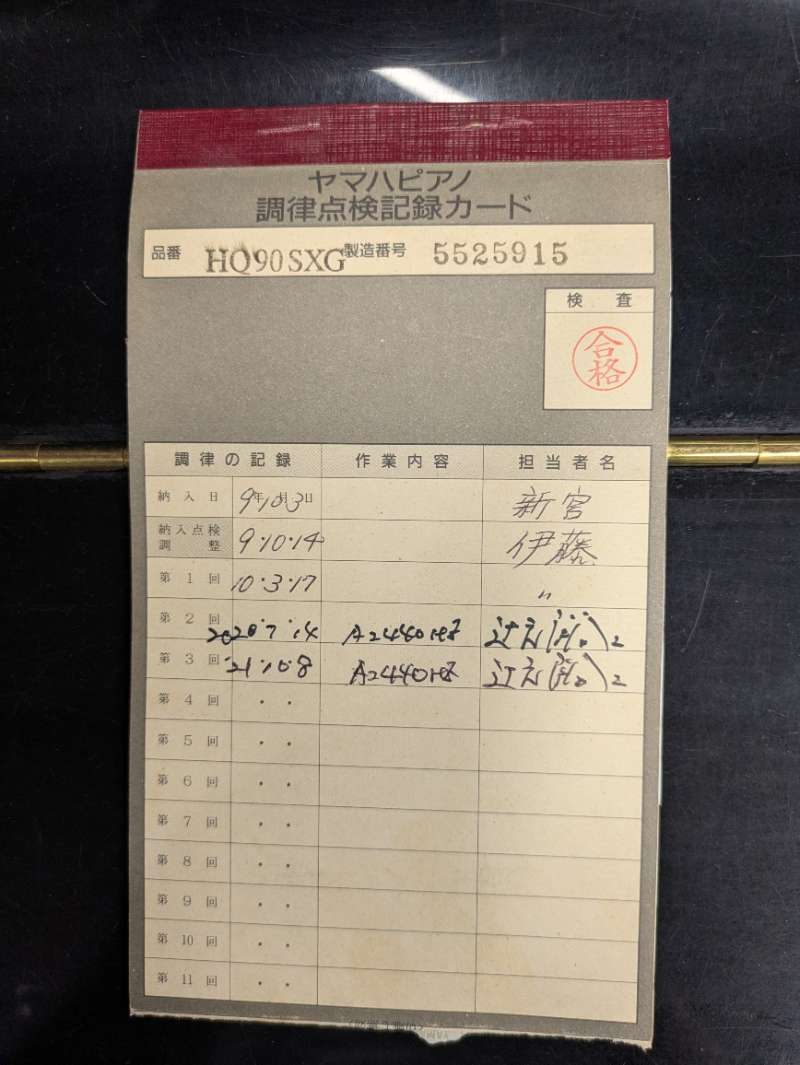 ヤマハピアノ
調律点検記録カード
品番 HQ90SXG 製造番号 5525915
検 査
合格
調律の記録 作業内容 担当者名
納入日 9年10月3日 新宮
納入点検調整 9・10・14 伊藤
第1回 10・3・17 〃
第2回 2020・7・14 A2440HZ
第3回 '21・10・8 A2440HZ
第4回 ・ ・
第5回 ・ ・
第6回 ・ ・
第7回 ・ ・
第8回 ・ ・
第9回 ・ ・
第10回 ・ ・
第11回 ・ ・